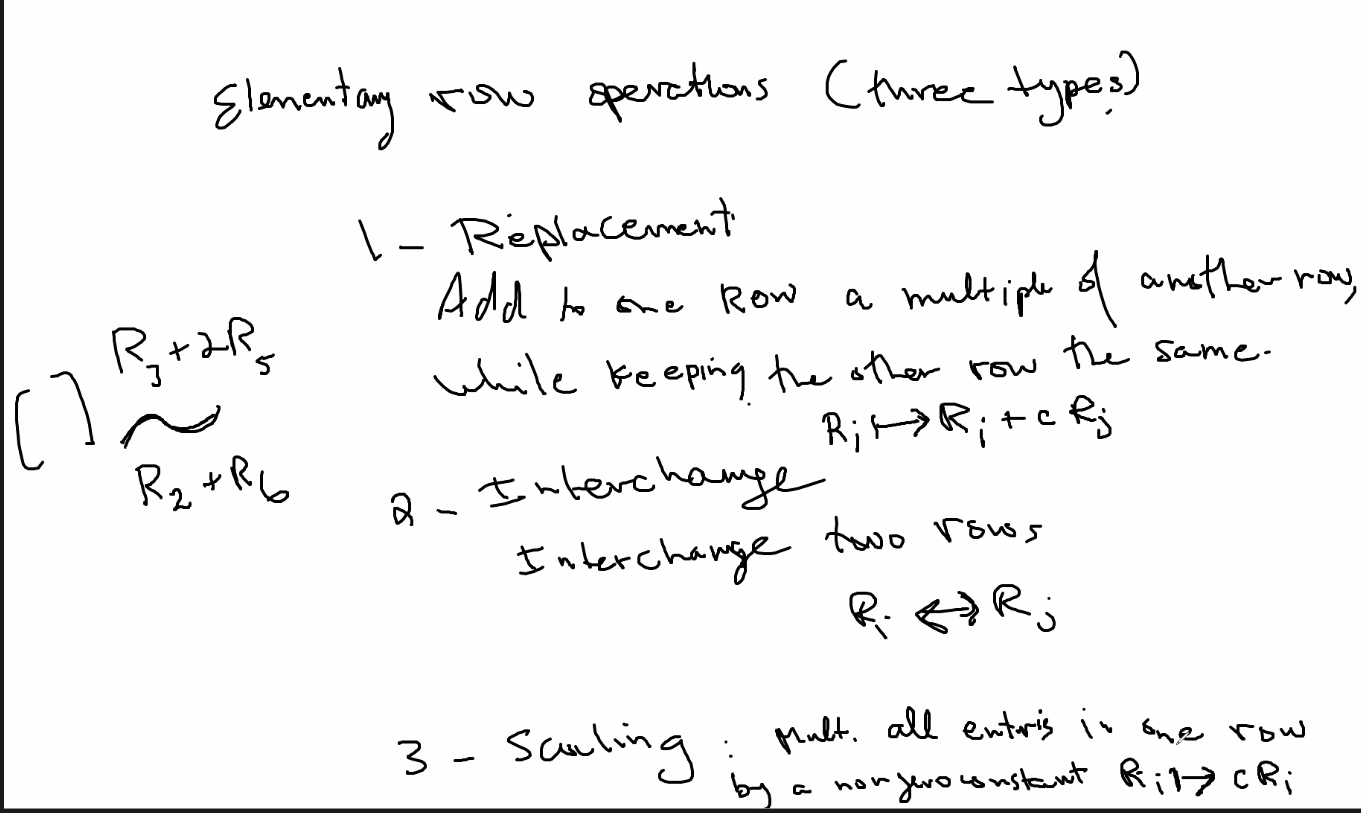 Elementary row operations (three types)
1 - Replacement
Add to one Row a multiple of another row,
while keeping the other row the same.
R_i ↦ R_i + c R_j
[ ] R_3 + 2R_5
~
R_2 + R_6
2 - Interchange
Interchange two rows
R_i ↔ R_j
3 - Scaling : Mult. all entris in one row
by a nonzero constant R_i ↦ c R_i